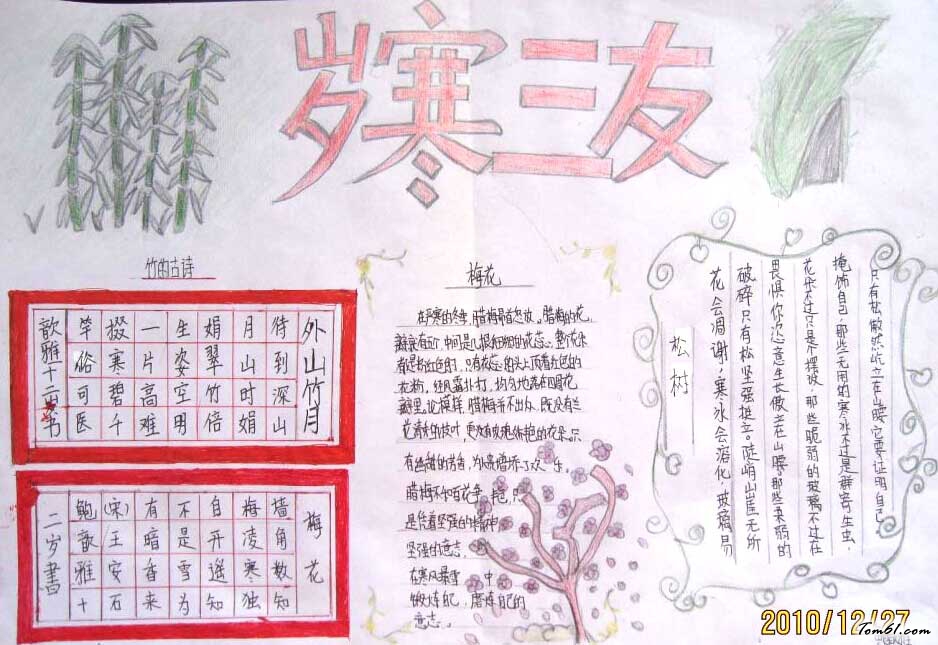 岁寒三友
竹的古诗
外山竹月
待到深山
月山时娟
娟翠竹倍
生姿空用
一片高难
掇寒碧千
竿俗可医
歆雅十二岁书
梅花
墙角数知
梅凌寒独
自开遥知
不是雪为
有暗香来
(宋)王安石
鲍歆雅十
二岁書
梅花
在严寒的冬季,腊梅昂首怒放。腊梅的花
瓣中间是几根细细的花蕊。整个花
都是粉红色的,只有花蕊的头上顶着红色的
花粉,经风霜扑打,均匀地落在四周花
瓣里。论模样,腊梅并不出众,既没有兰
花清的枝叶,更没有玫瑰的花朵。只
有丝甜的芳香,为人
腊梅不与百花争艳,只
是凭着坚强的精神
坚强的意志,
在寒风暴雪中
锻炼自己,磨炼自己的
意志。
松树
只有松傲然屹立在山腰它要证明自己
掩饰自己,那些无用的寒冰不过是群寄生虫,
花朵不过只是个摆设,那些脆弱的玻璃不过在
畏惧你恣意生长傲立在山腰。那些柔弱的
破碎只有松坚强挺立。陡峭山崖无所
花会凋谢,寒冰会溶化,玻璃易
2010/12/27
Tom61.com